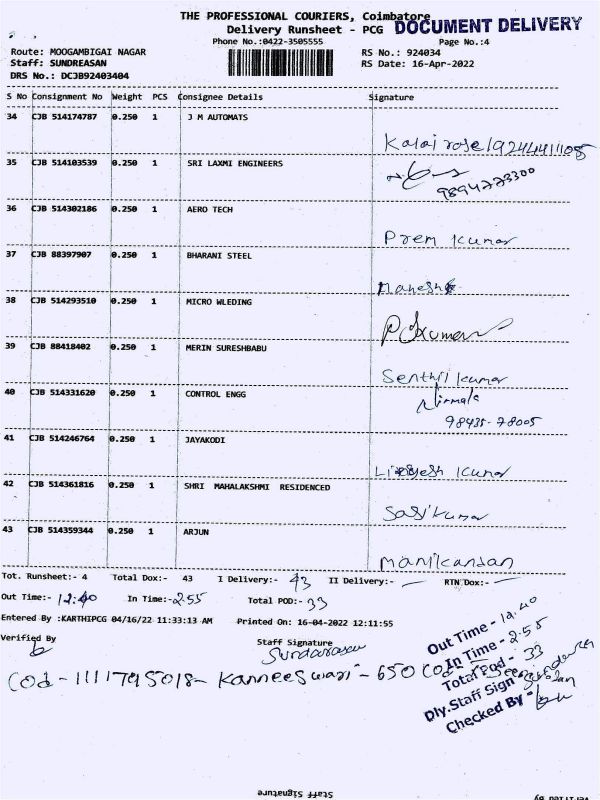 THE PROFESSIONAL COURIERS, Coimbatore
DOCUMENT DELIVERY
Delivery Runsheet - PCG
Phone No.:0422-3505555 Page No.:4
Route: MOOGAMBIGAI NAGAR RS No.: 924034
Staff: SUNDREASAN RS Date: 16-Apr-2022
DRS No.: DCJB92403404
S No Consignment No Weight PCS Consignee Details Signature
34 CJB 514174787 0.250 1 J M AUTOMATS
Kalai rose
35 CJB 514103539 0.250 1 SRI LAXMI ENGINEERS
9894773300
36 CJB 514302186 0.250 1 AERO TECH
Prem Kumar
37 CJB 88397907 0.250 1 BHARANI STEEL
Mahesh
38 CJB 514293510 0.250 1 MICRO WLEDING
39 CJB 88418402 0.250 1 MERIN SURESHBABU
Senthil kumar
40 CJB 514331620 0.250 1 CONTROL ENGG
Nirmala
98435-78005
41 CJB 514246764 0.250 1 JAYAKODI
Kumar
42 CJB 514361816 0.250 1 SHRI MAHALAKSHMI RESIDENCED
Sasikumar
43 CJB 514359344 0.250 1 ARJUN
Manikandan
Tot. Runsheet:- 4 Total Dox:- 43 I Delivery:- 43 II Delivery:- — RTN Dox:- —
Out Time:- 12.40 In Time:- 2.55 Total POD:- 33
Entered By :KARTHIPCG 04/16/22 11:33:13 AM Printed On: 16-04-2022 12:11:55
Verified By Staff Signature
Sundarasan
Cod - 1111795018 - Kanneeswari - 650 Cod
Out Time - 12.40
In Time - 2.55
Total Pod - 33
Dly.Staff Sign
Checked By -
Staff Signature
Verified By